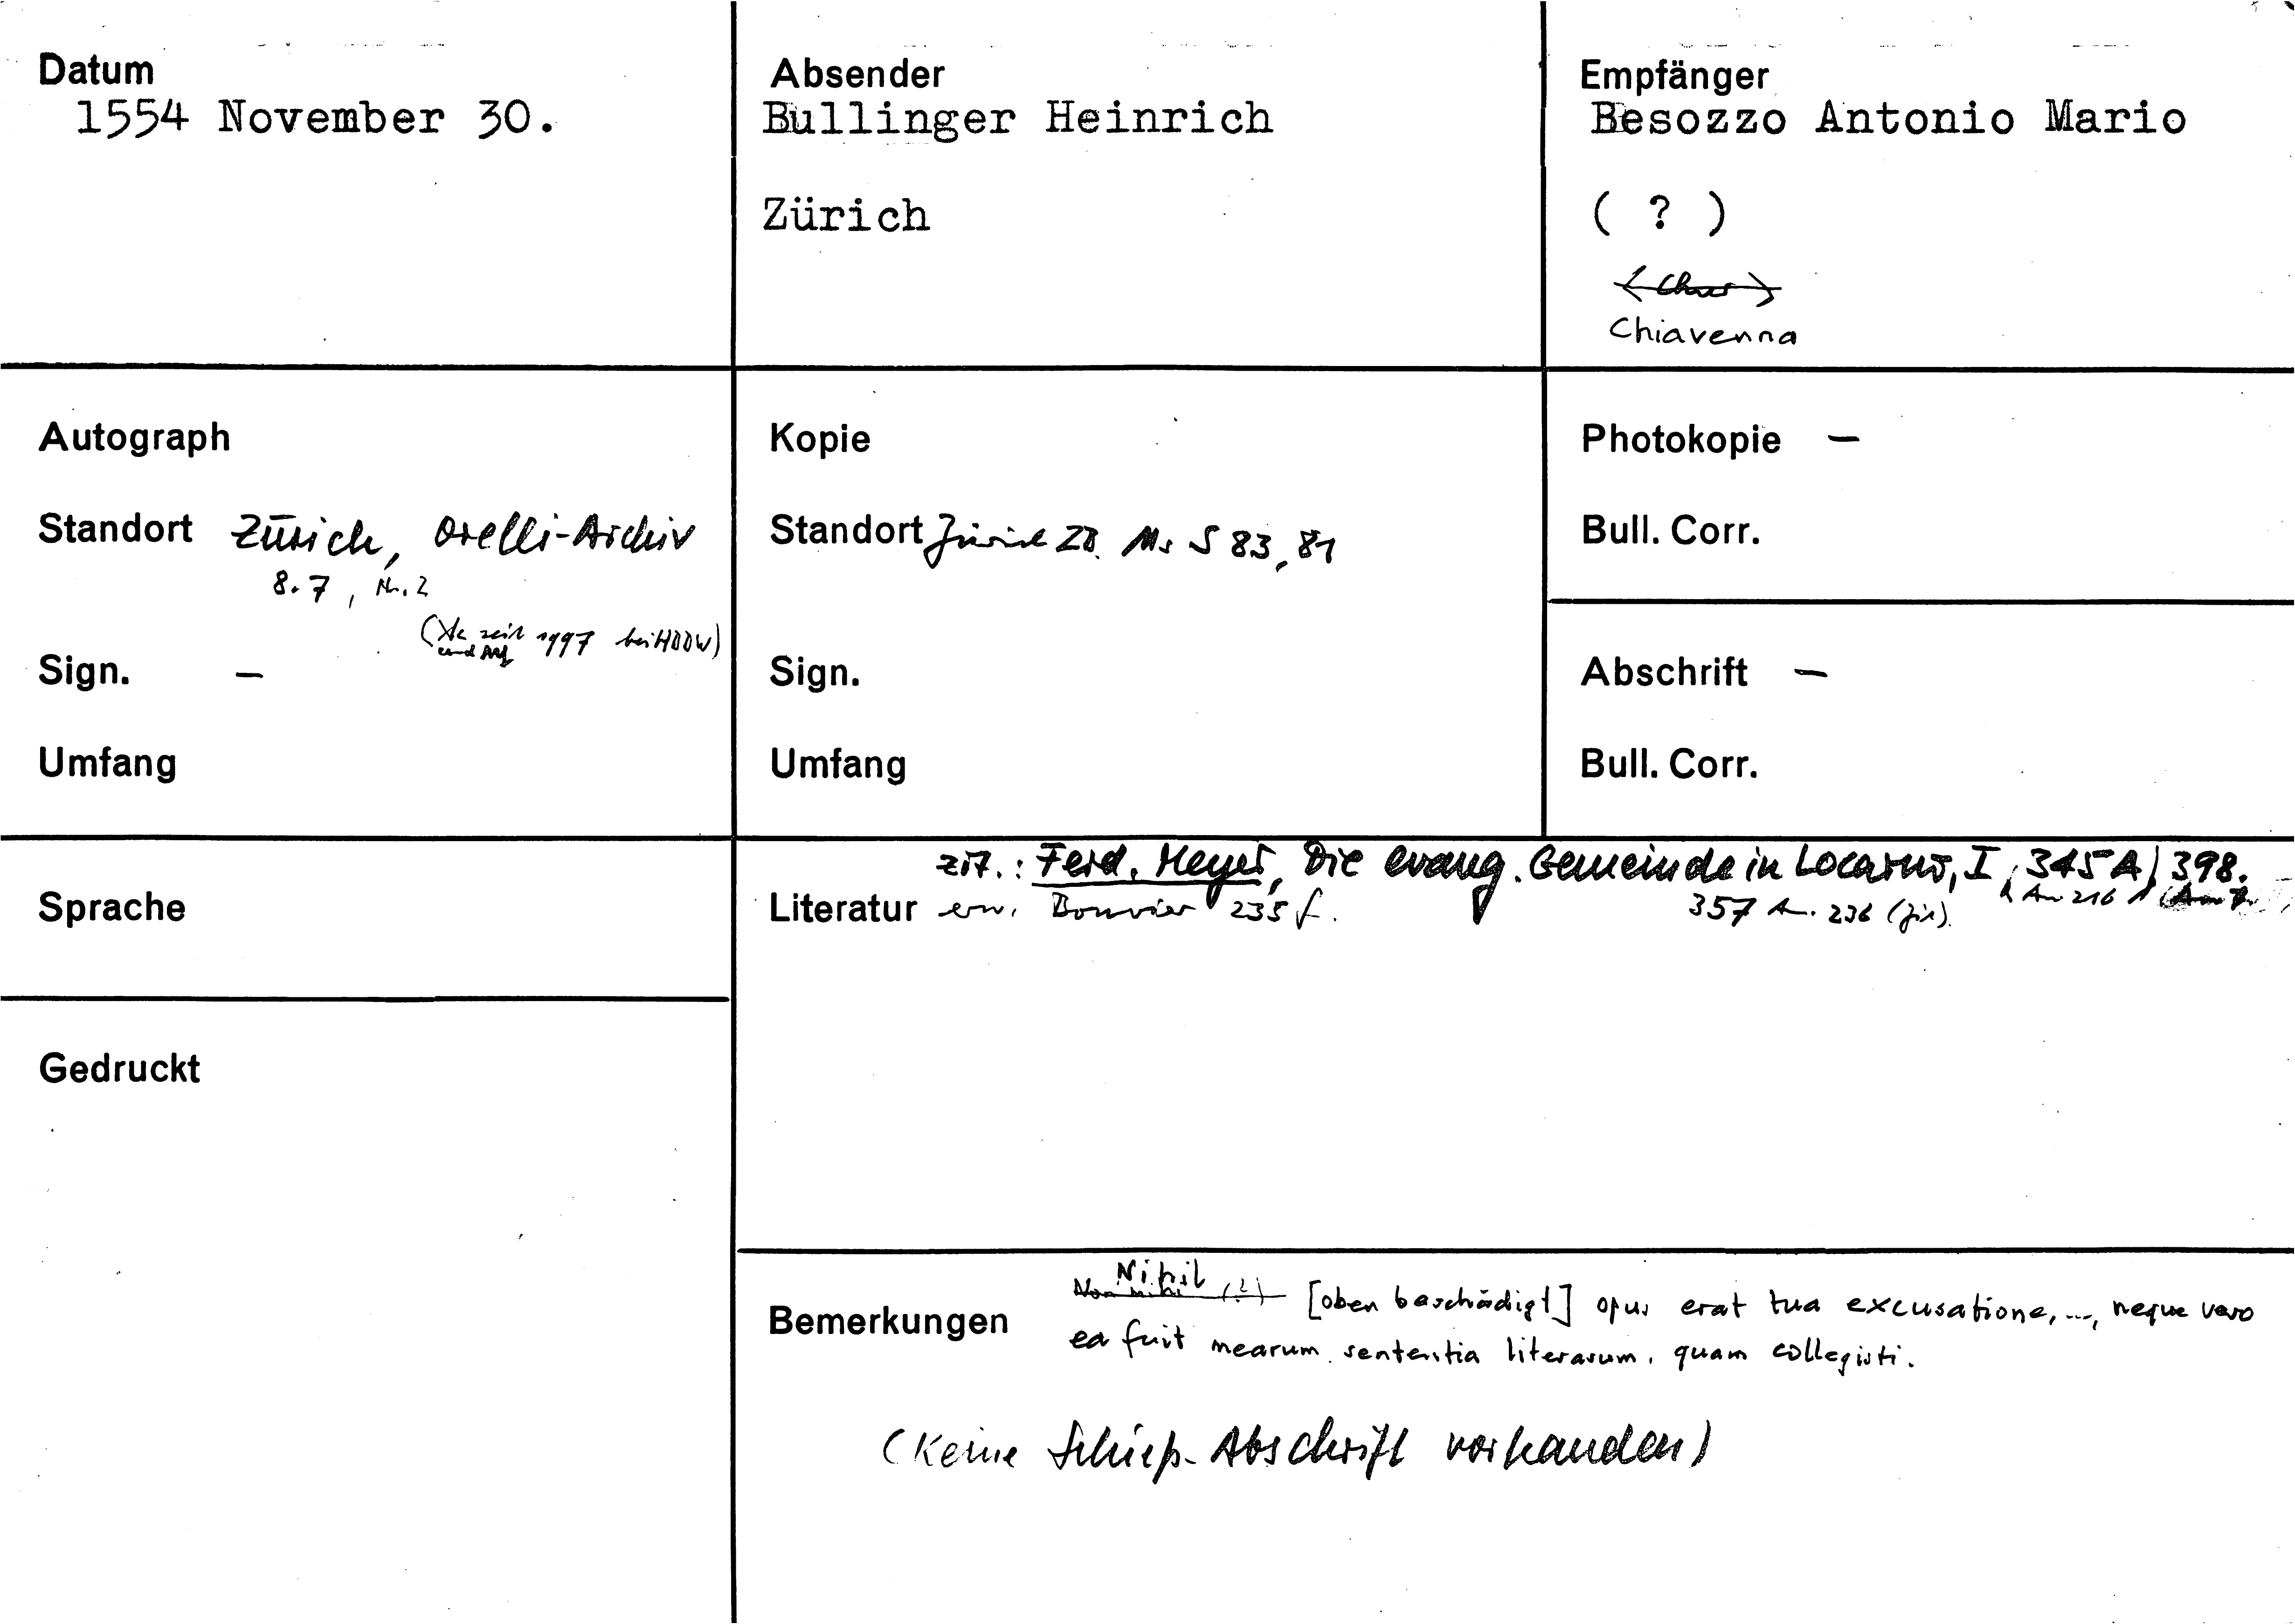 Datum
1554 November 30.
Absender
Bullinger Heinrich
Zürich
Empfänger
Besozzo Antonio Mario
( ? )
Chiavenna
Autograph
Standort Zürich, Orelli-Archiv
8.7, Nr. 2
(Xk seit 1997 bei HBBW)
Sign. –
Umfang
Kopie
Standort Zürich ZB. Ms S 83, 81
Sign.
Umfang
Photokopie –
Bull. Corr.
Abschrift –
Bull. Corr.
Sprache
Gedruckt
zit.: Ferd. Meyer, Die evang. Gemeinde in Locarno, I, 345 A, 398.
Literatur erw. Bonvier 235 f. 357 A. 236 (zit).
Nihil
Bemerkungen [oben beschädigt] opus erat tua excusatione, ..., neque vero
ea fuit mearum sententia literarum, quam collegisti.
(Keine Schieß-Abschrift vorhanden)